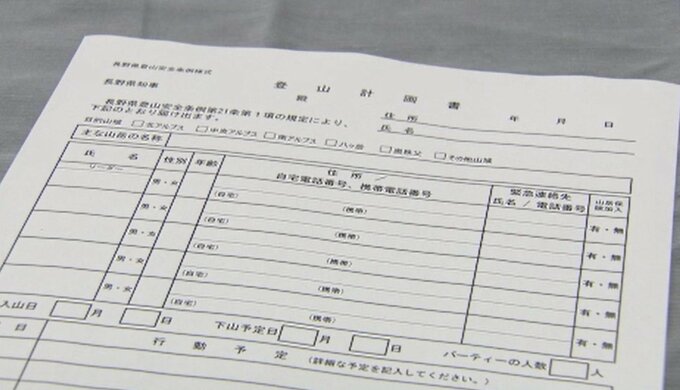 長野県登山安全条例様式
登山計画書
長野県知事 殿 年 月 日
住所
氏名
長野県登山安全条例第21条第1項の規定により、
下記のとおり届け出ます。
目的山域 □北アルプス □中央アルプス □南アルプス □八ヶ岳 □奥秩父 □その他山域
主な山岳の名称
氏名 性別 年齢 住所 / 自宅電話番号、携帯電話番号 緊急連絡先 氏名 / 電話番号 山岳保険加入
リーダー 男・女 (自宅) (携帯) 有・無
男・女 (自宅) (携帯) 有・無
男・女 (自宅) (携帯) 有・無
男・女 (自宅) (携帯) 有・無
男・女 (自宅) (携帯) 有・無
入山日 月 日 下山予定日 月 日 パーティーの人数 人
日 行動予定 (詳細な予定を記入してください。)